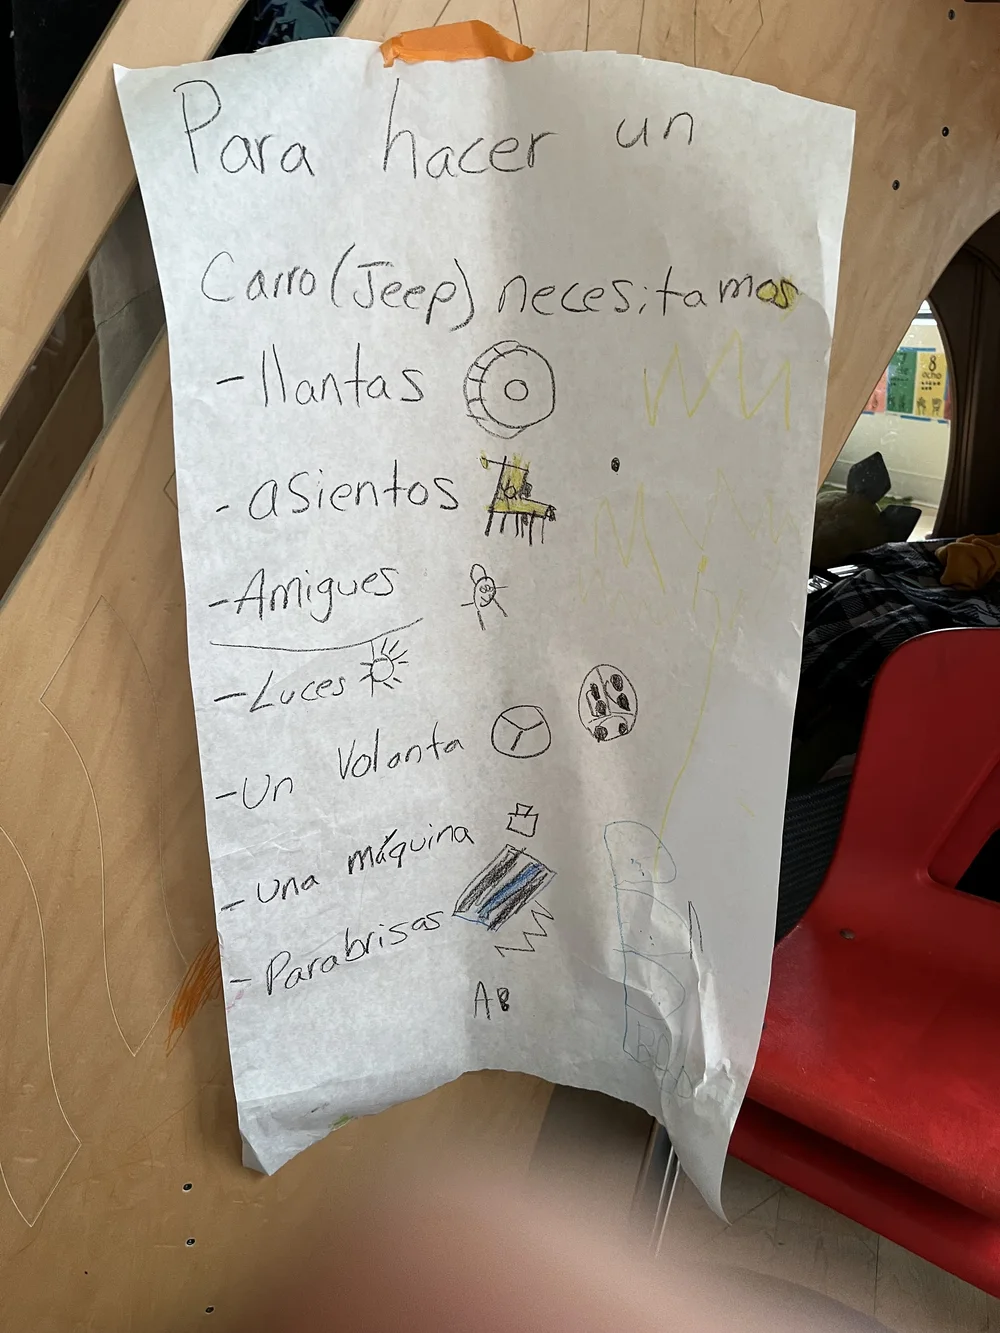 Para hacer un
Carro (Jeep) necesitamos
- llantas
- asientos
- Amigues
- Luces
- Un Volanta
- una máquina
- Parabrisas
AB
8
ocho